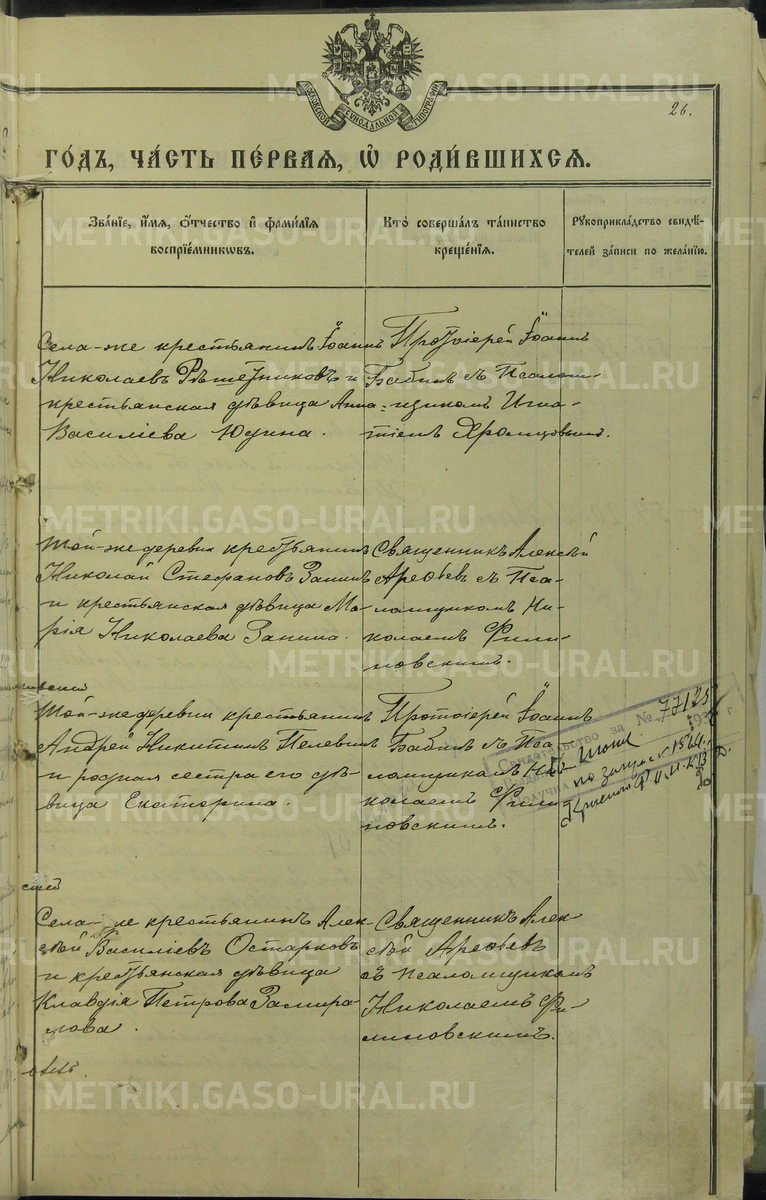 МОСКОВСКОЙ СУНОДАЛЬНОЙ ТИПОГРАФІИ
26.
ГО́ДЪ, ЧА́СТЬ ПЕ́РВАЯ, Ѡ҆ РОДИ́ВШИХСЯ.
Зва́нїе, и҆́мя, ѻ҆́тчество и҆ фами́лїя
воспрїе́мникѡвъ.
Кто̀ соверша́лъ та́инство
креще́нїя.
Рꙋкоприкла́дство свидѣ́-
телей за́писи по жела́нїю.
Села-же крестьянинъ Іоаннъ
Николаевъ Рѣшетниковъ и
крестьянская дѣвица Анна
Василіева Юдина.
Протоіерей Іоаннъ
Бабинъ съ Псалом-
щикомъ Игна-
тіемъ Хромцовымъ.
Той-же деревни крестьянинъ
Николай Стефановъ Занинъ
и крестьянская дѣвица Ма-
рія Николаева Занина.
Священникъ Алексѣй
Арефьевъ съ Пса-
ломщикомъ Ни-
колаемъ Фили-
повскимъ.
Той-же деревни крестьянинъ
Андрей Никитинъ Пелевинъ
и родная сестра его дѣ-
вица Екатерина.
Протоіерей Іоаннъ
Бабинъ съ Пса-
ломщикомъ Ни-
колаемъ Фили-
повскимъ.
Свидетельство за № 77123
Села-же крестьянинъ Алек-
сѣй Василіевъ Остарковъ
и крестьянская дѣвица
Клавдія Петрова Замира-
лова.
Священникъ Алек-
сѣй Арефьевъ
съ псаломщикомъ
Николаемъ Фи-
липовскимъ.
METRIKI.GASO-URAL.RU